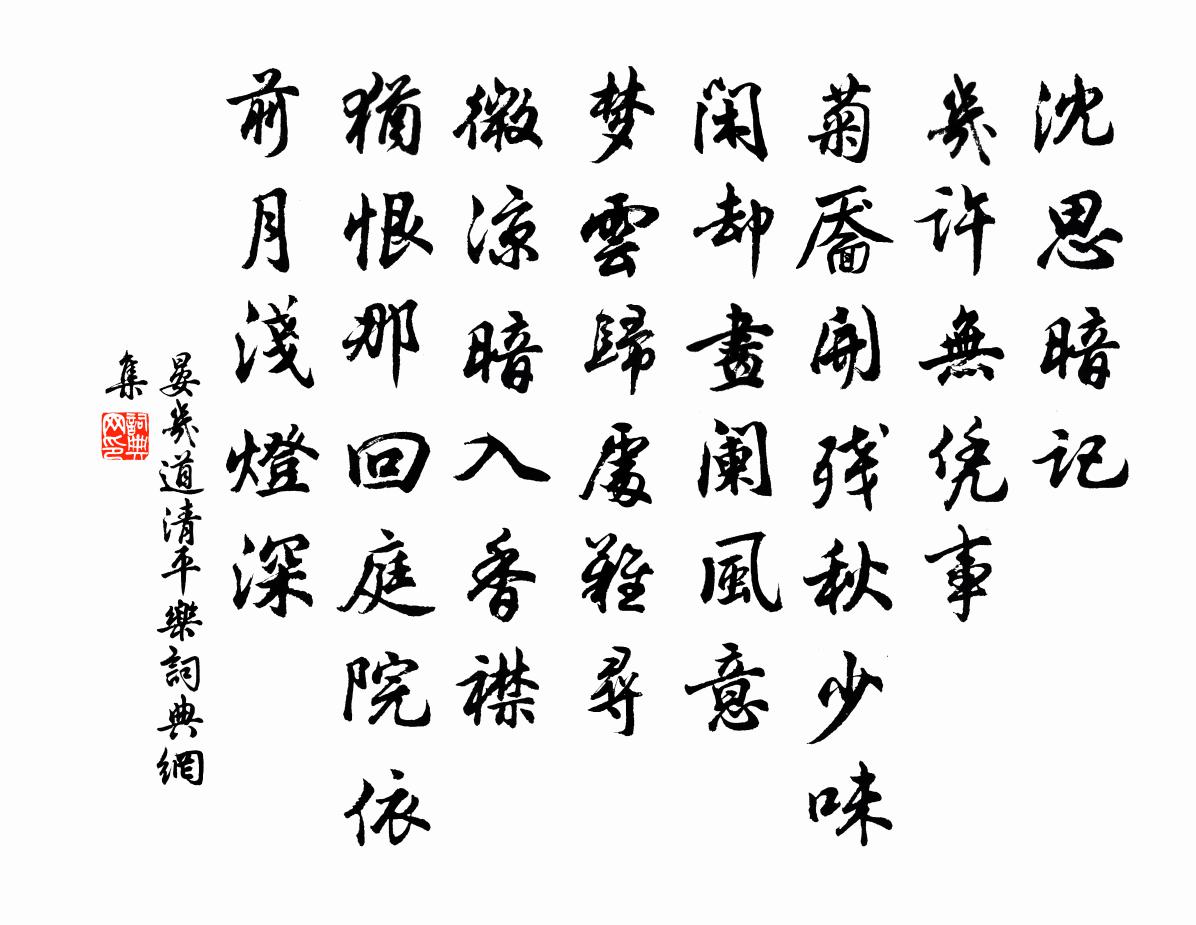 沈思暗記
幾許無凭事
菊靨開残秋少味
閑却畫闌風意
梦雲歸處難尋
微涼暗入香襟
猶恨那回庭院依
前月淺燈深
晏幾道清平樂詞典網
集
詞典
网印